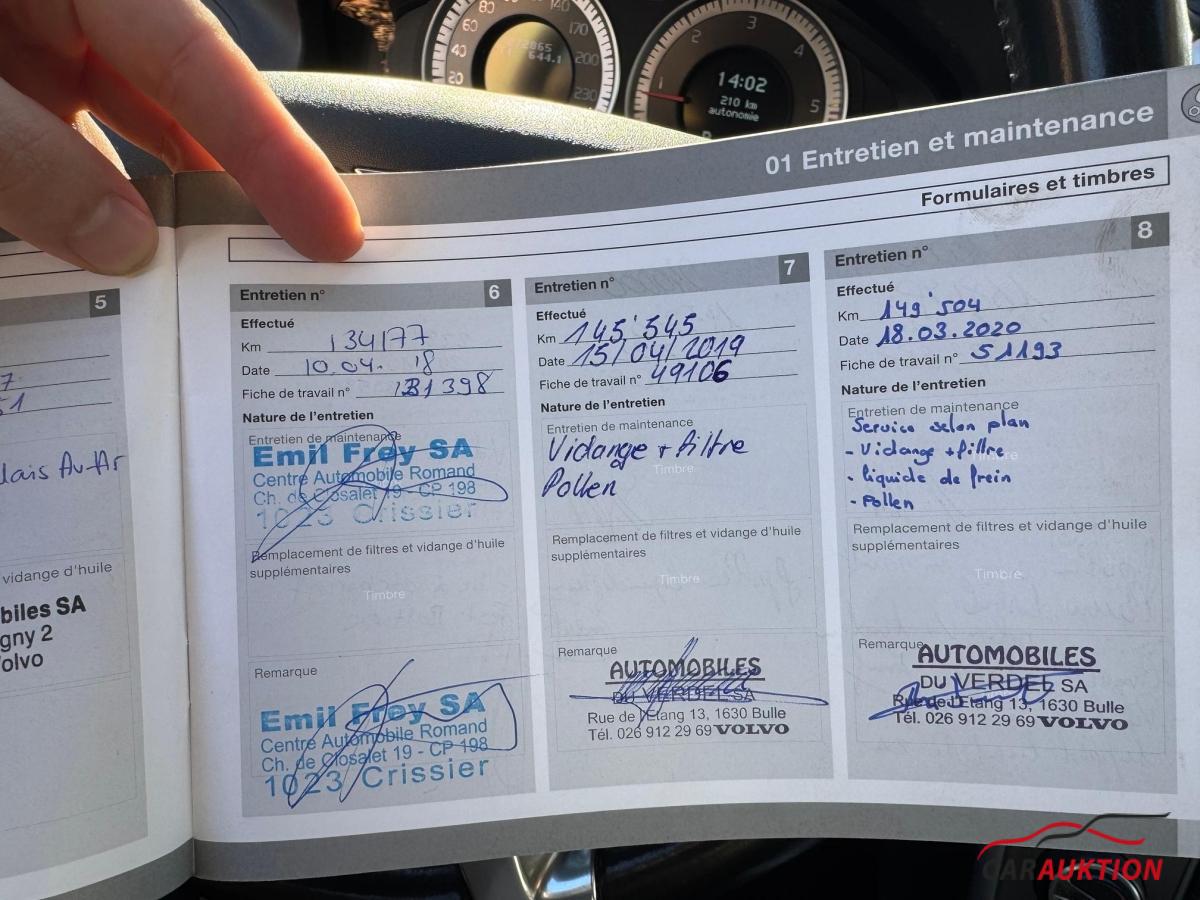 60
80
140
170
200
230
40
20
644.1
1
2
3
4
5
14:02
210 km
autonomie
01 Entretien et maintenance
Formulaires et timbres
5
lais Av-Ar
vidange d'huile
biles SA
gny 2
olvo
Entretien n° 6
Effectué
Km 134177
Date 10.04. 18
Fiche de travail n° 131398
Nature de l'entretien
Entretien de maintenance
Emil Frey SA
Centre Automobile Romand
Ch. de Closalet 19 - CP 198
1023 Crissier
Remplacement de filtres et vidange d'huile
supplémentaires
Timbre
Remarque
Emil Frey SA
Centre Automobile Romand
Ch. de Closalet 19 - CP 198
1023 Crissier
Entretien n° 7
Effectué
Km 145'545
Date 15/04/2019
Fiche de travail n° 49106
Nature de l'entretien
Entretien de maintenance
Vidange + filtre
Timbre
Pollen
Remplacement de filtres et vidange d'huile
supplémentaires
Timbre
Remarque
AUTOMOBILES
DU VERDEL SA
Rue de l'Etang 13, 1630 Bulle
Tél. 026 912 29 69 VOLVO
Entretien n° 8
Effectué
Km 149'504
Date 18.03.2020
Fiche de travail n° 51193
Nature de l'entretien
Entretien de maintenance
Service selon plan
- Vidange + filtre
- liquide de frein
- Pollen
Remplacement de filtres et vidange d'huile
supplémentaires
Timbre
Remarque
AUTOMOBILES
DU VERDEL SA
Rue de l'Etang 13, 1630 Bulle
Tél. 026 912 29 69 VOLVO
CARAUKTION